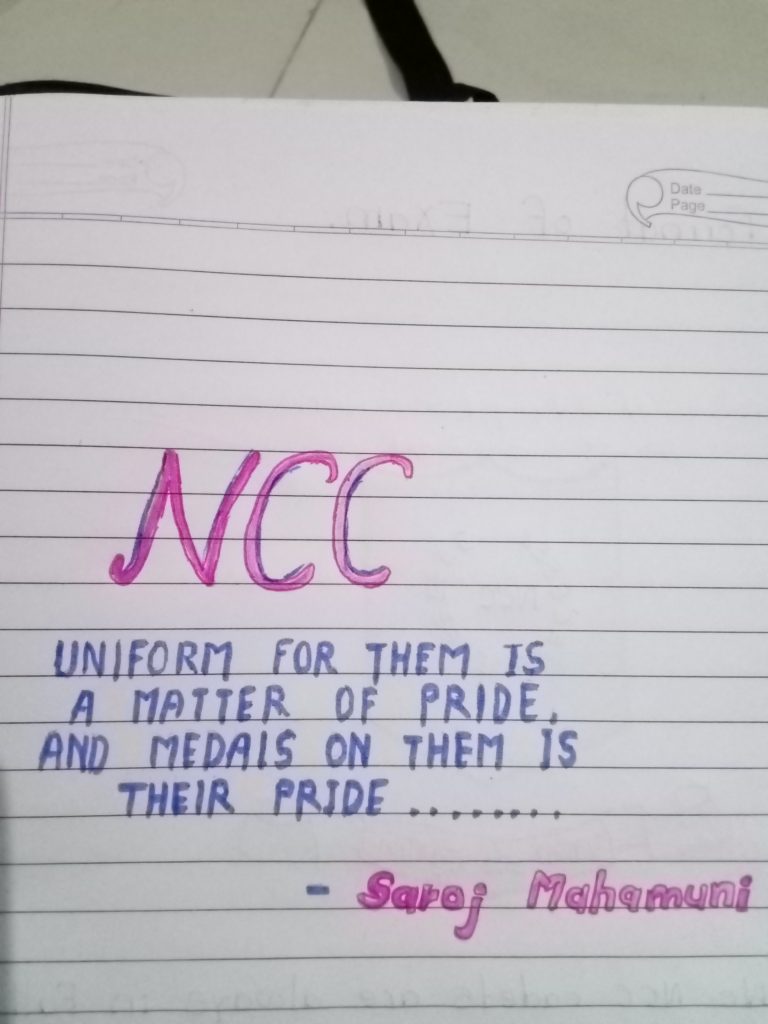 Date
Page
NCC
UNIFORM FOR THEM IS
A MATTER OF PRIDE,
AND MEDALS ON THEM IS
THEIR PRIDE ........
- Saroj Mahamuni